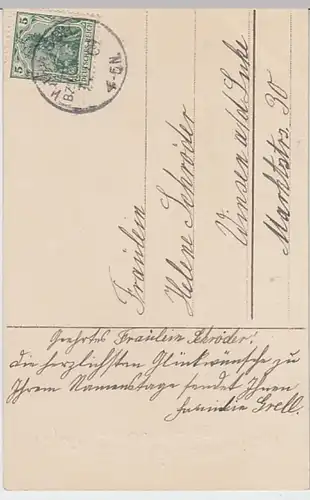 5 5
4-5N.
Fräulein
Helene Schröder
Winsen a/d Luhe
Marktstrs. 30
Geehrtes Fräulein Schröder!
Die herzlichsten Glückwünsche zu
Ihrem Namenstage sendet Ihnen
Familie Grell.